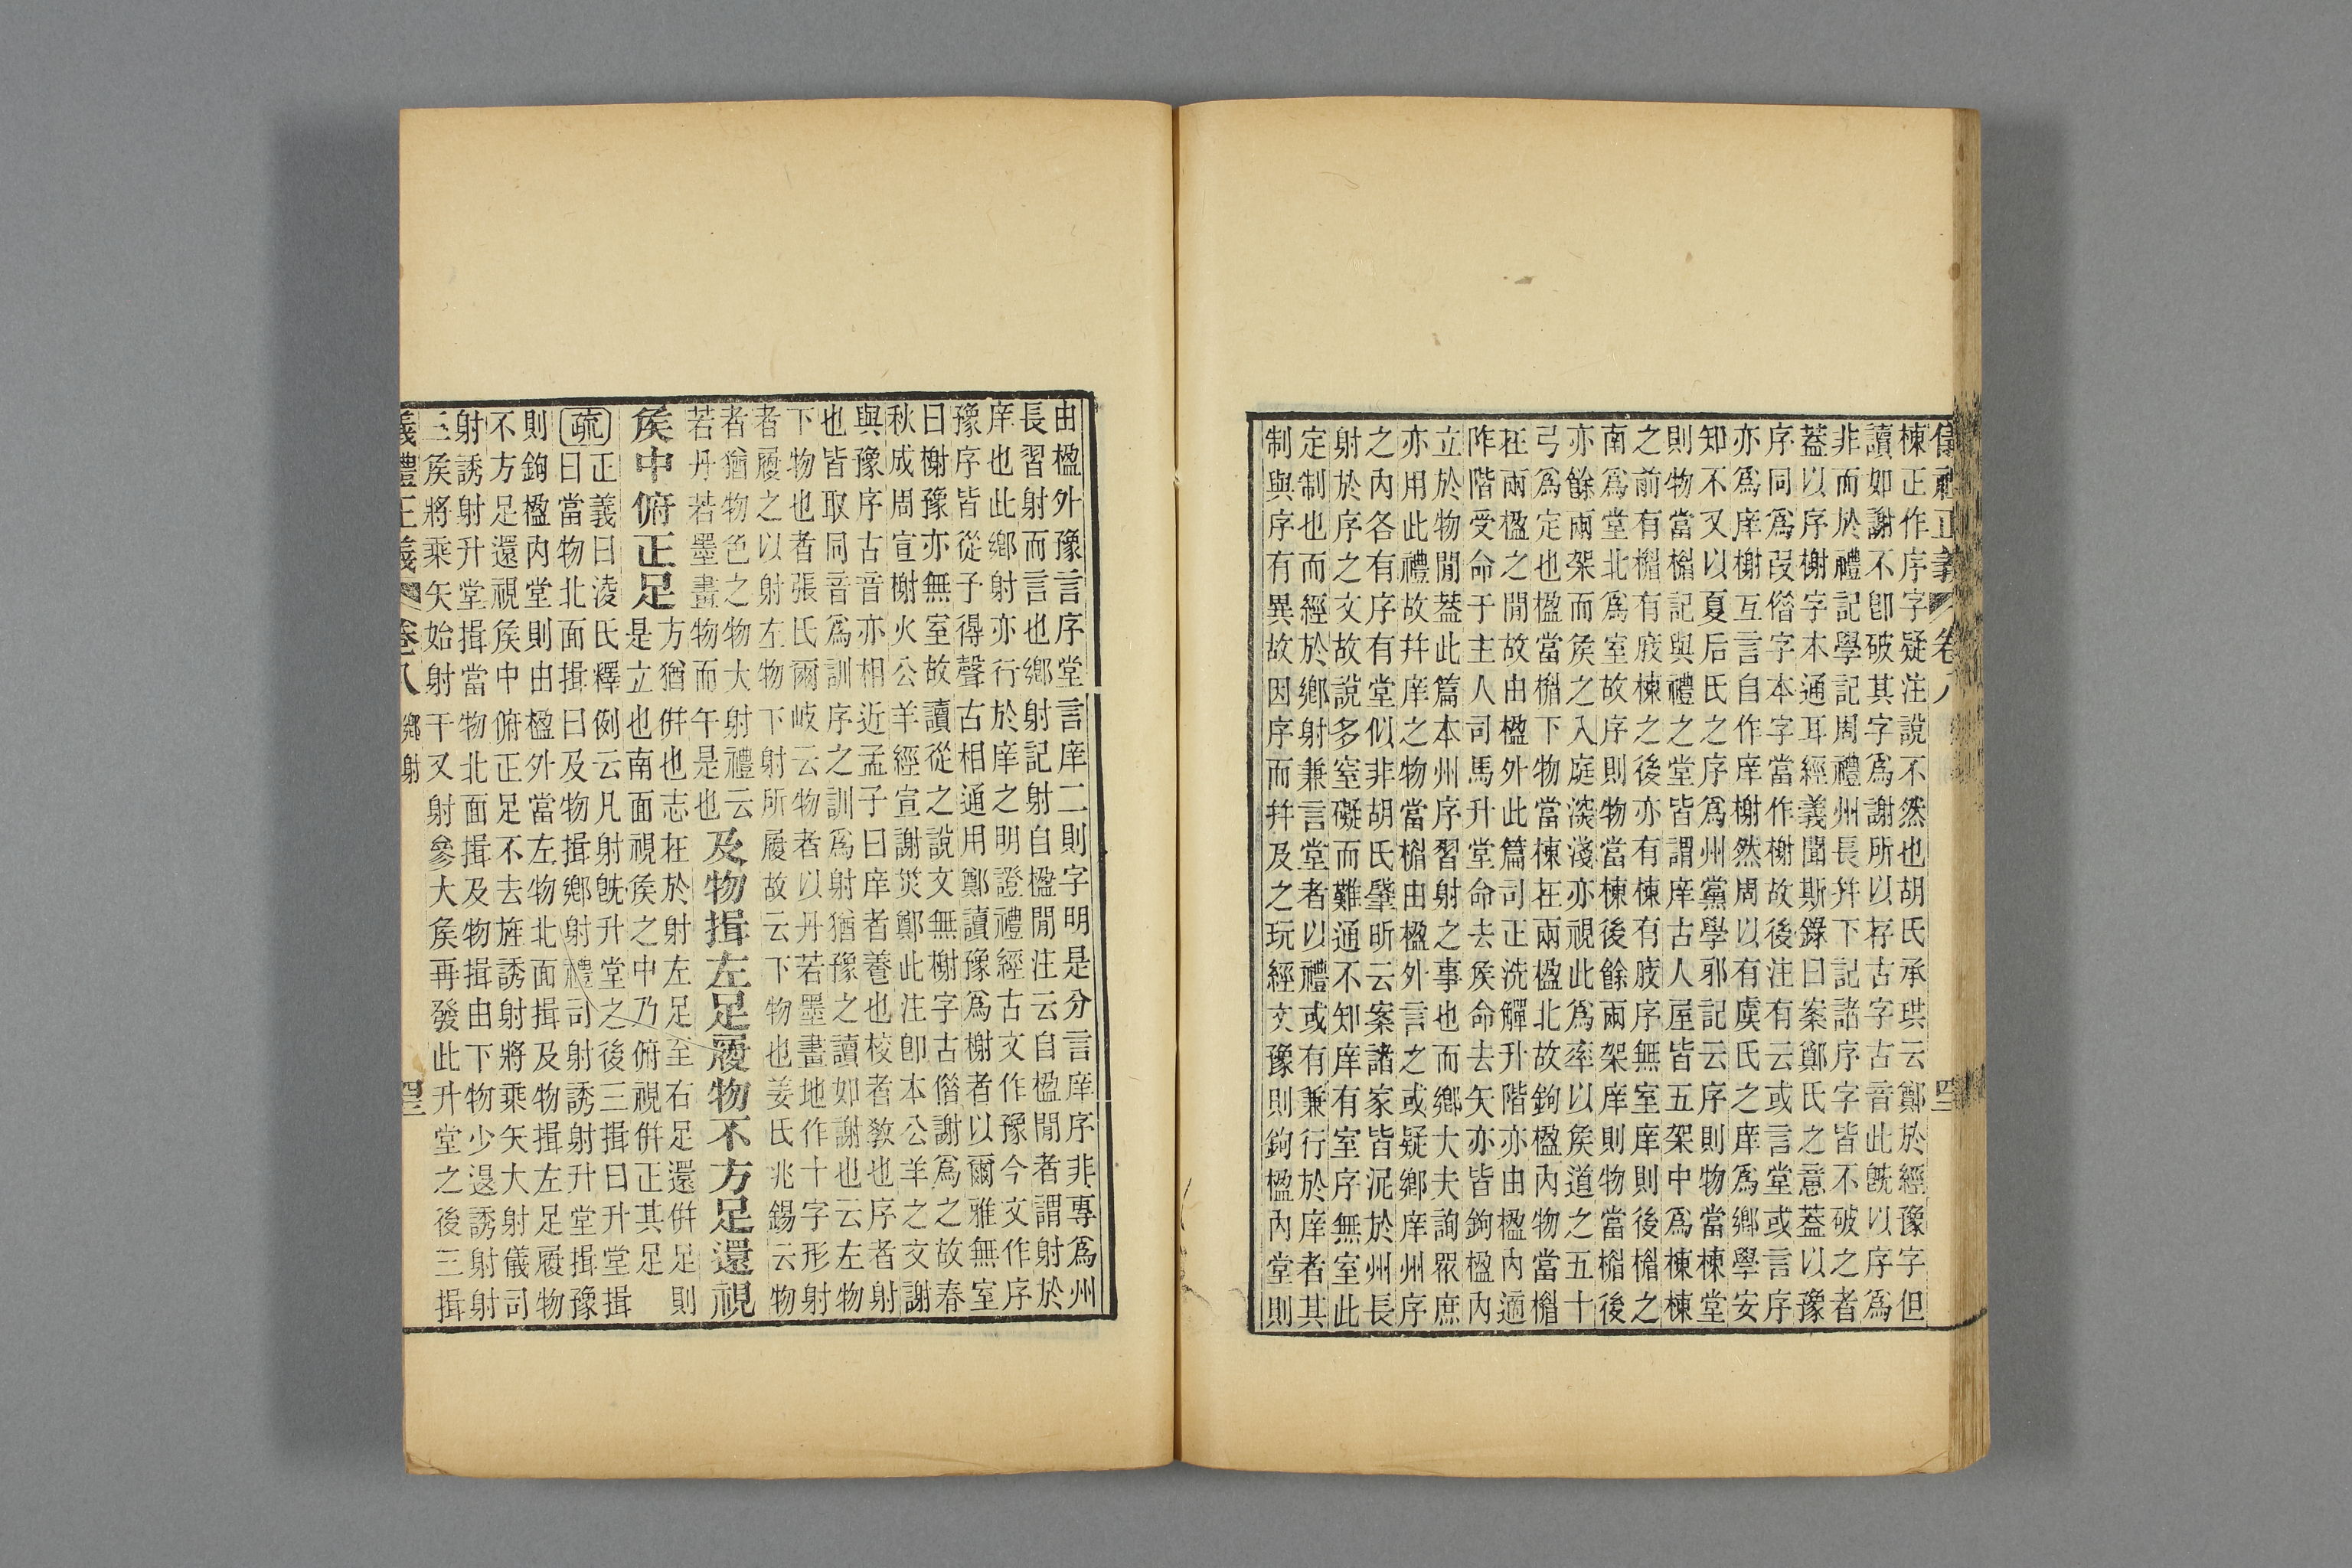 儀禮正義 卷八 四三
棟正作序字疑注說不然也胡氏承珙云鄭於經豫字但
讀如謝不卽破其字爲謝所以存古字古音此旣以序爲
非而於禮記學記周禮州長幷下記諸序字皆不破之者
蓋以序榭字本通耳經義聞斯錄曰案鄭氏之意蓋以豫
序同爲叚偺字本字當作榭故後注有云或言堂或言序
亦爲庠榭互言自作庠榭然周以有虞氏之庠爲鄉學安
知不又以夏后氏之序爲州黨學邪記云序則物當棟堂
則物當楣記與禮之堂皆謂庠古人屋皆五架中爲棟棟
之前有楣有庪棟之後亦有棟有庪序無室庠則後楣之
南爲堂北爲室故序則物當棟後餘兩架庠則物當楣後
亦餘兩架而矦之入庭深淺亦視此爲率以矦道之五十
弓爲定也楹當楣下物當棟在兩楹北故鉤楹內物當楣
在兩楹之閒故由楹外此篇司正洗觶升階亦由楹內適
阼階受命于主人司馬升堂命去矦命去矢亦皆鉤楹內
立於物閒蓋此篇本州序習射之事也而鄉大夫詢眾庶
亦用此禮故幷庠之物當楣由楹外言之或疑鄉庠州序
之內各有序有堂似非胡氏肇昕云案諸家皆泥於州長
射於序之文故說多窒礙而難通不知庠有室序無室此
定制也而經於鄉射兼言堂者以禮或有兼行於庠者其
制與序有異故因序而幷及之玩經文豫則鉤楹內堂則
由楹外豫言序堂言庠二則字明是分言庠序非專爲州
長習射而言也鄉射記射自楹閒注云自楹閒者謂射於
庠也此鄉射亦行於庠之明證禮經古文作豫今文作序
豫序皆從子得聲古相通用鄭讀豫爲榭者以爾雅無室
曰榭豫亦無室故讀從之說文無榭字古偺謝爲之故春
秋成周宣榭火公羊經宣謝災鄭此注卽本公羊之文謝
與豫序古音亦相近孟子曰庠者養也校者敎也序者射
也皆取同音爲訓序之訓爲射猶豫之讀如謝也云左物
下物也者張氏爾岐云物者以丹若墨畫地作十字形射
者履之以射左物下射所履故云下物也姜氏兆錫云物
者猶物色之物大射禮云
若丹若墨畫物而午是也
及物揖左足履物不方足還視
矦中俯正足
方猶倂也志在於射左足至右足還倂足則
是立也南面視矦之中乃俯視倂正其足
疏
正義曰淩氏釋例云凡射旣升堂之後三揖曰升堂揖
曰當物北面揖曰及物揖鄉射禮司射誘射升堂揖豫
則鉤楹內堂則由楹外當左物北面揖及物揖左足履物
不方足還視矦中俯正足不去旌誘射將乘矢大射儀司
射誘射升堂揖當物北面揖及物揖由下物少退誘射射
三矦將乘矢始射干又射參大矦再發此升堂之後三揖
儀禮正義 卷八 鄉射 四三